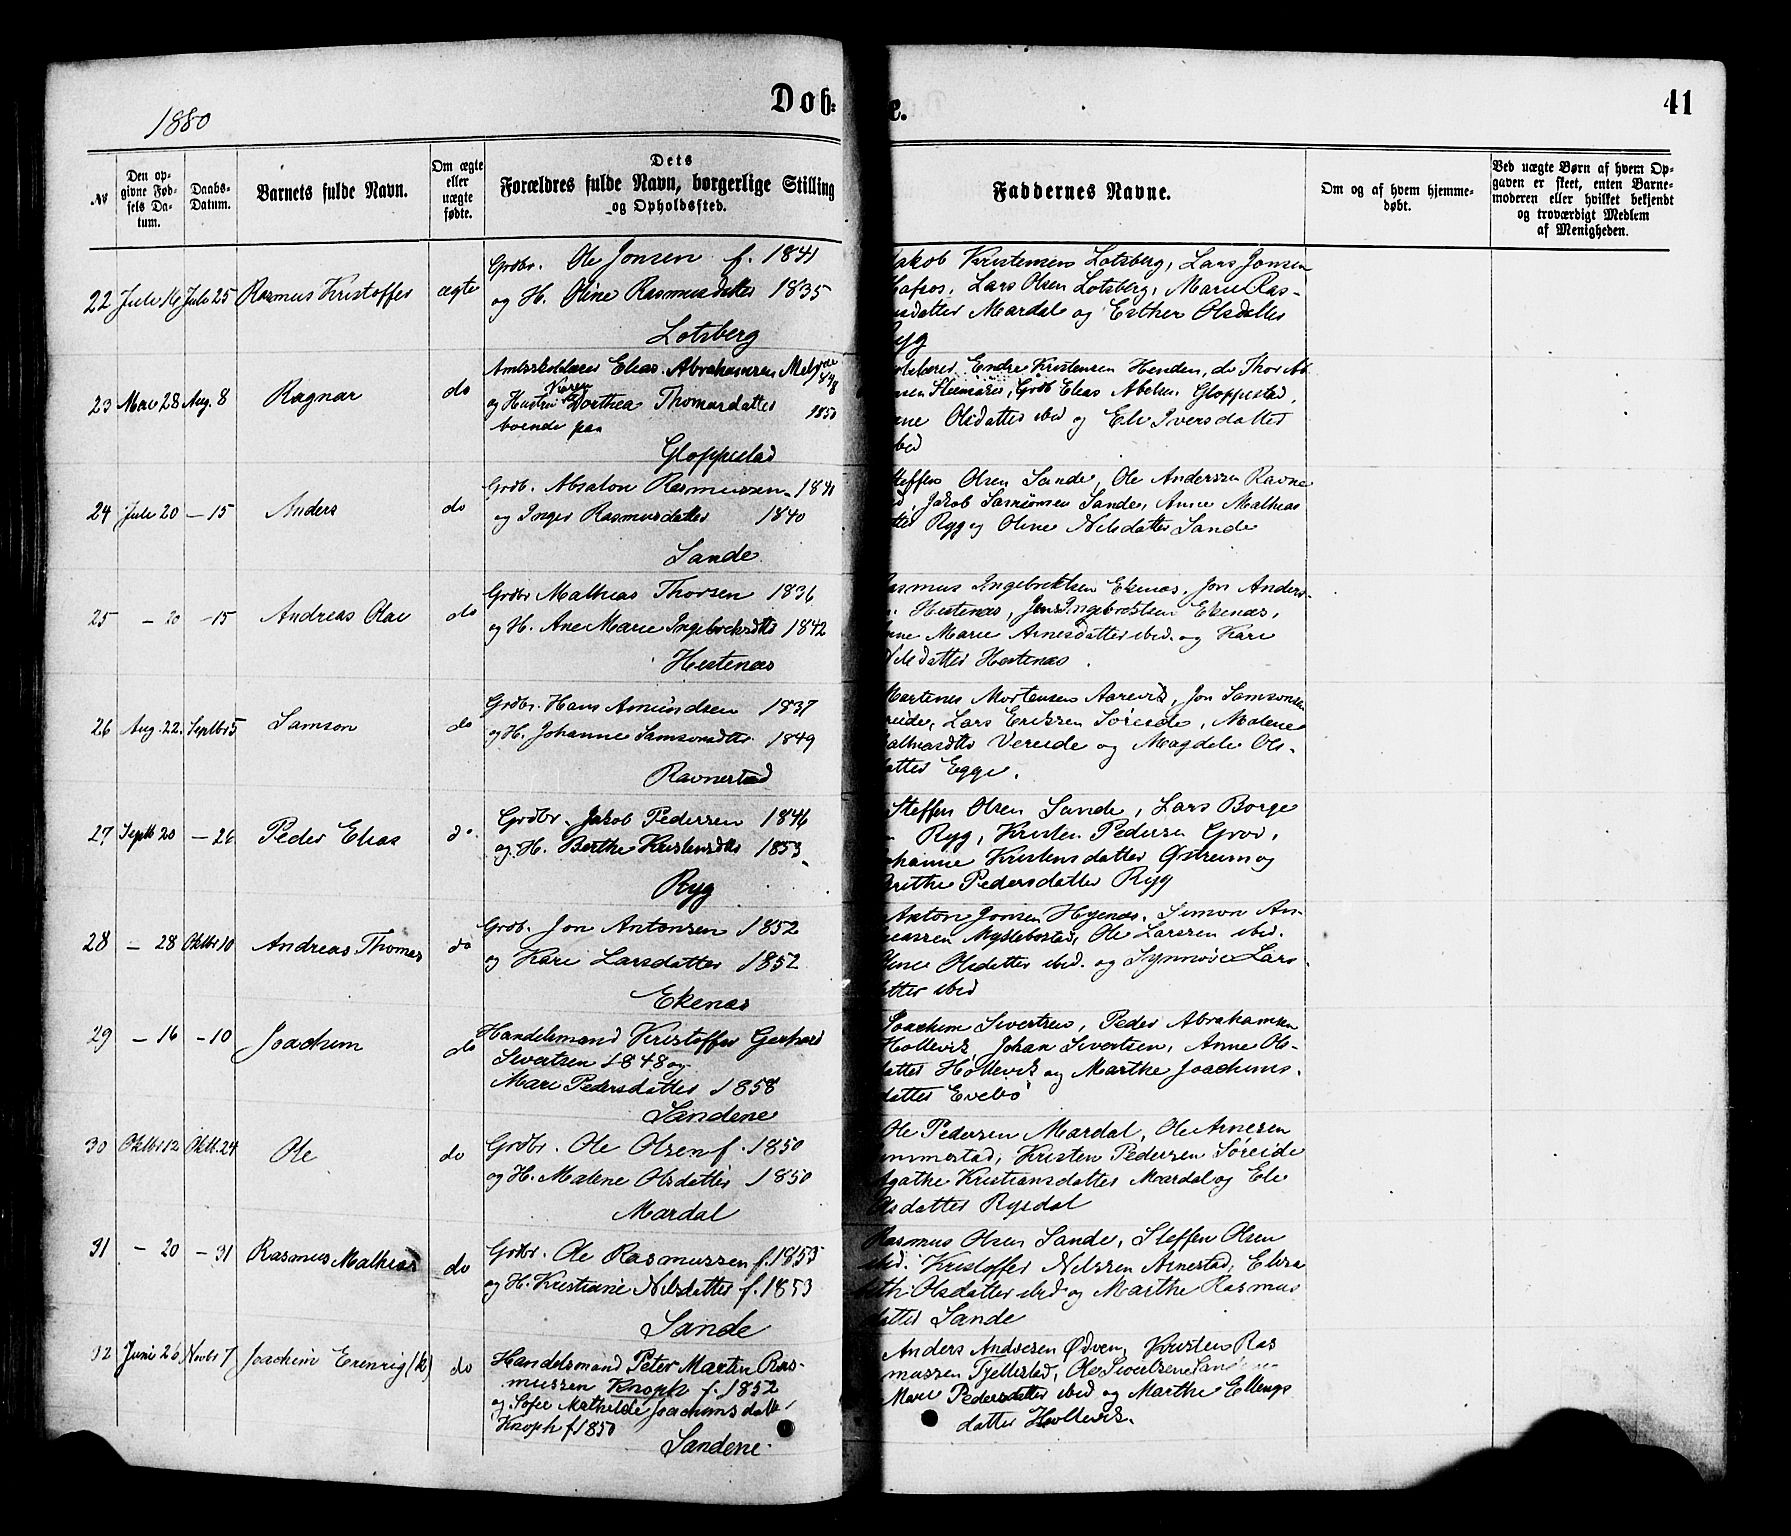 1880
Døb-
e.
41
No
Den op-
givne Fød-
sels Da-
tum.
Daabs-
Datum.
Barnets fulde Navn.
Om ægte
eller
uægte
fødte.
Dets
Forældres fulde Navn, borgerlige Stilling
og Opholdssted.
Faddernes Navne.
Om og af hvem hjemme-
døbt.
Ved uægte Børn af hvem Op-
gaven er skeet, enten Barne-
moderen eller hvilket bekjendt
og troværdigt Medlem
af Menigheden.
22 Juli 16 Juli 25 Rasmus Kristoffer ægte
Grdbr. Ole Jonsen f. 1841
og H. Oline Rasmusdatter 1835
Lotsberg
Jakob Kristensen Lotsberg, Lars Jonsen
Lars Olsen Lotsberg, Marie Ras-
usdatter Mardal og Esther Olsdatter
Ryg
23 Mai 28 Aug. 8 Ragnar do
Amtsskolelærer Elias Abrahamsen
og Hustru Dorthea Thomasdatter 1850
boende paa
Gloppestad
Endre Kristensen Henden, do Thor
Grdb Elias Abelsen Gloppestad,
Olsdatter ibid og Eli Iversdatter
ibid
24 Juli 20 – 15 Anders do
Grdb. Absalon Rasmussen 1840
og Inger Rasmusdatter 1840
Sande
Steffen Olsen Sande, Ole Anderssen Ravne
Jakob Samsonsen Sande, Anne Mathias
tter Ryg og Oline Nilsdatter Sande
25 – 20 – 15 Andreas Olai do
Grdbr Mathias Thorsen 1836
og H. Ane Marie Ingebrektsdtr 1842
Hestenæs
Rasmus Ingebrektsen Ekenæs, Jon Anders-
Hestenæs, Jens Ingebretsen Ekenæs,
Anne Marie Arnesdatter ibid. og Kari
Nilsdatter Hestenæs.
26 Aug. 22. Septbr 5 Samson do
Grdbr. Hans Amundsen 1837
og H. Johanne Samsonsdtr. 1849
Ravnestad
Martines Mortensen Aarevik, Jon Samsonsen
reide, Lars Eriksen Søreide, Malene
athiasdtr Vereide og Magdeli Ols-
datter Egge.
27 Septb 20 – 26 Peder Elias do.
Grdbr. Jakob Pedersen 1846
og H. Berthe Kristensdtr 1853
Ryg
Steffen Olsen Sande, Lars Borge
Ryg, Kristen Pedersen Grov,
Johanne Kristensdatter Østreim og
Brithe Pedersdatter Ryg
28 – 28 Oktbr 10 Andreas Thomas do
Grdb. Jon Antonsen 1852
og Kari Larsdatter 1852
Ekenæs
Anton Jonsen Hyenæs, Simon An-
reassen Myklebostad, Ole Larssen ibid.
Oline Olsdatter ibid. og Synnøve Lars
datter ibid
29 – 16 – 10 Joachim do
Handelsmand Kristoffer Gerhard
Sivertsen 1848 og
Mari Pedersdatter 1858
Sandene
Joachim Sivertsen, Peder Abrahamsen
Hollevik, Johan Sivertsen, Anne Ols-
datter Hollevik og Marthe Joachims-
datter Evebø
30 Oktbr 12 Oktb. 24 Ole do
Grdbr. Ole Olsen f. 1850
og H. Malene Olsdatter 1850
Mardal
Ole Pedersen Mardal, Ole Arnesen
mmestad, Kristen Pedersen Søreide
Agathe Kristiansdatter Mardal og Eli
Olsdatter Rysdal
31 – 20 – 31 Rasmus Mathias do
Grdbr. Ole Rasmussen f. 1853
og H. Kristiane Nilsdatter f. 1853
Sande
Rasmus Olsen Sande, Steffen Olsen
ibid. Kristoffer Nilssen Arnestad, Elisa
beth Olsdatter ibid og Marthe Rasmus
datter Sande
32 Juni 26 Novbr 7 Joachim Erenrig (k) do
Handelsmand Peter Martin Ras-
mussen Knoph f. 1852
og Sofie Mathilde Joachimsdatter
Knoph f 1850
Sandene
Anders Andersen Ødven, Kristen Ras
mussen Fjellestad, Ole Sivertsen Sandene
Mari Pedersdatter ibid og Marthe Ellings
datter Hollevik.